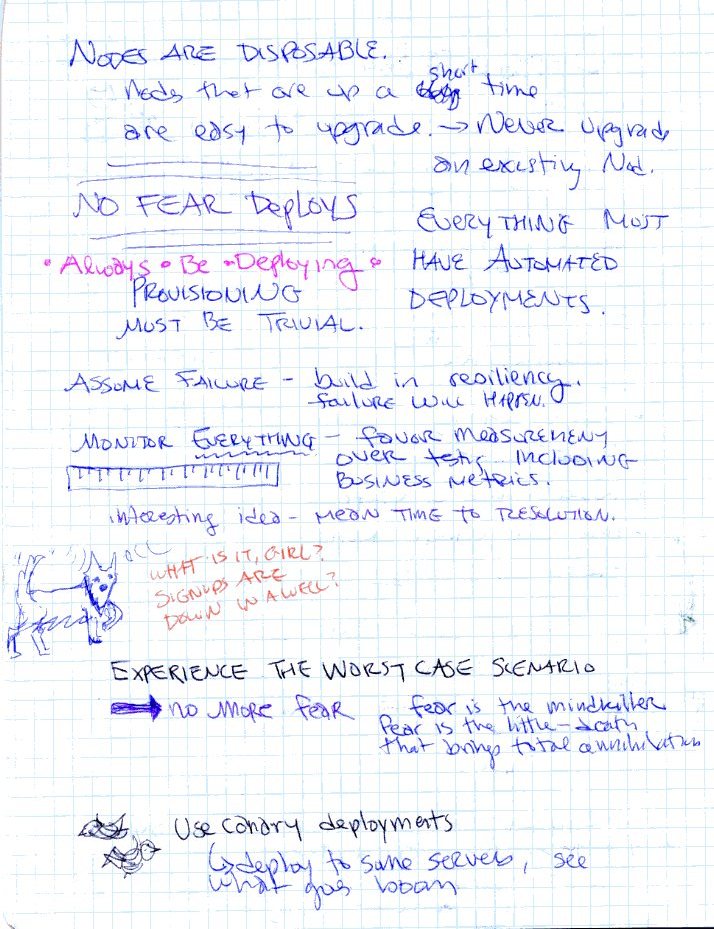 NODES ARE DISPOSABLE.
Nodes that are up a short time
are easy to upgrade. → Never Upgrade
an existing Nod.
NO FEAR Deploys
EVERYTHING MUST
HAVE AUTOMATED
DEPLOYMENTS.
• Always • Be • Deploying •
PROVISIONING
MUST BE TRIVIAL.
ASSUME FAILURE - build in resiliency.
failure will HAPPEN.
MONITOR EVERYTHING - favor measurement
over INCLUDING
BUSINESS METRICS.
interesting idea - MEAN TIME TO RESOLUTION.
WHAT IS IT, GIRL?
SIGNUPS ARE
DOWN IN A WELL?
EXPERIENCE THE WORST CASE SCENARIO
→ no more fear
fear is the mindkiller
fear is the little-death
that brings total annihilation
Use canary deployments
↳ deploy to some servers, see
what goes boom